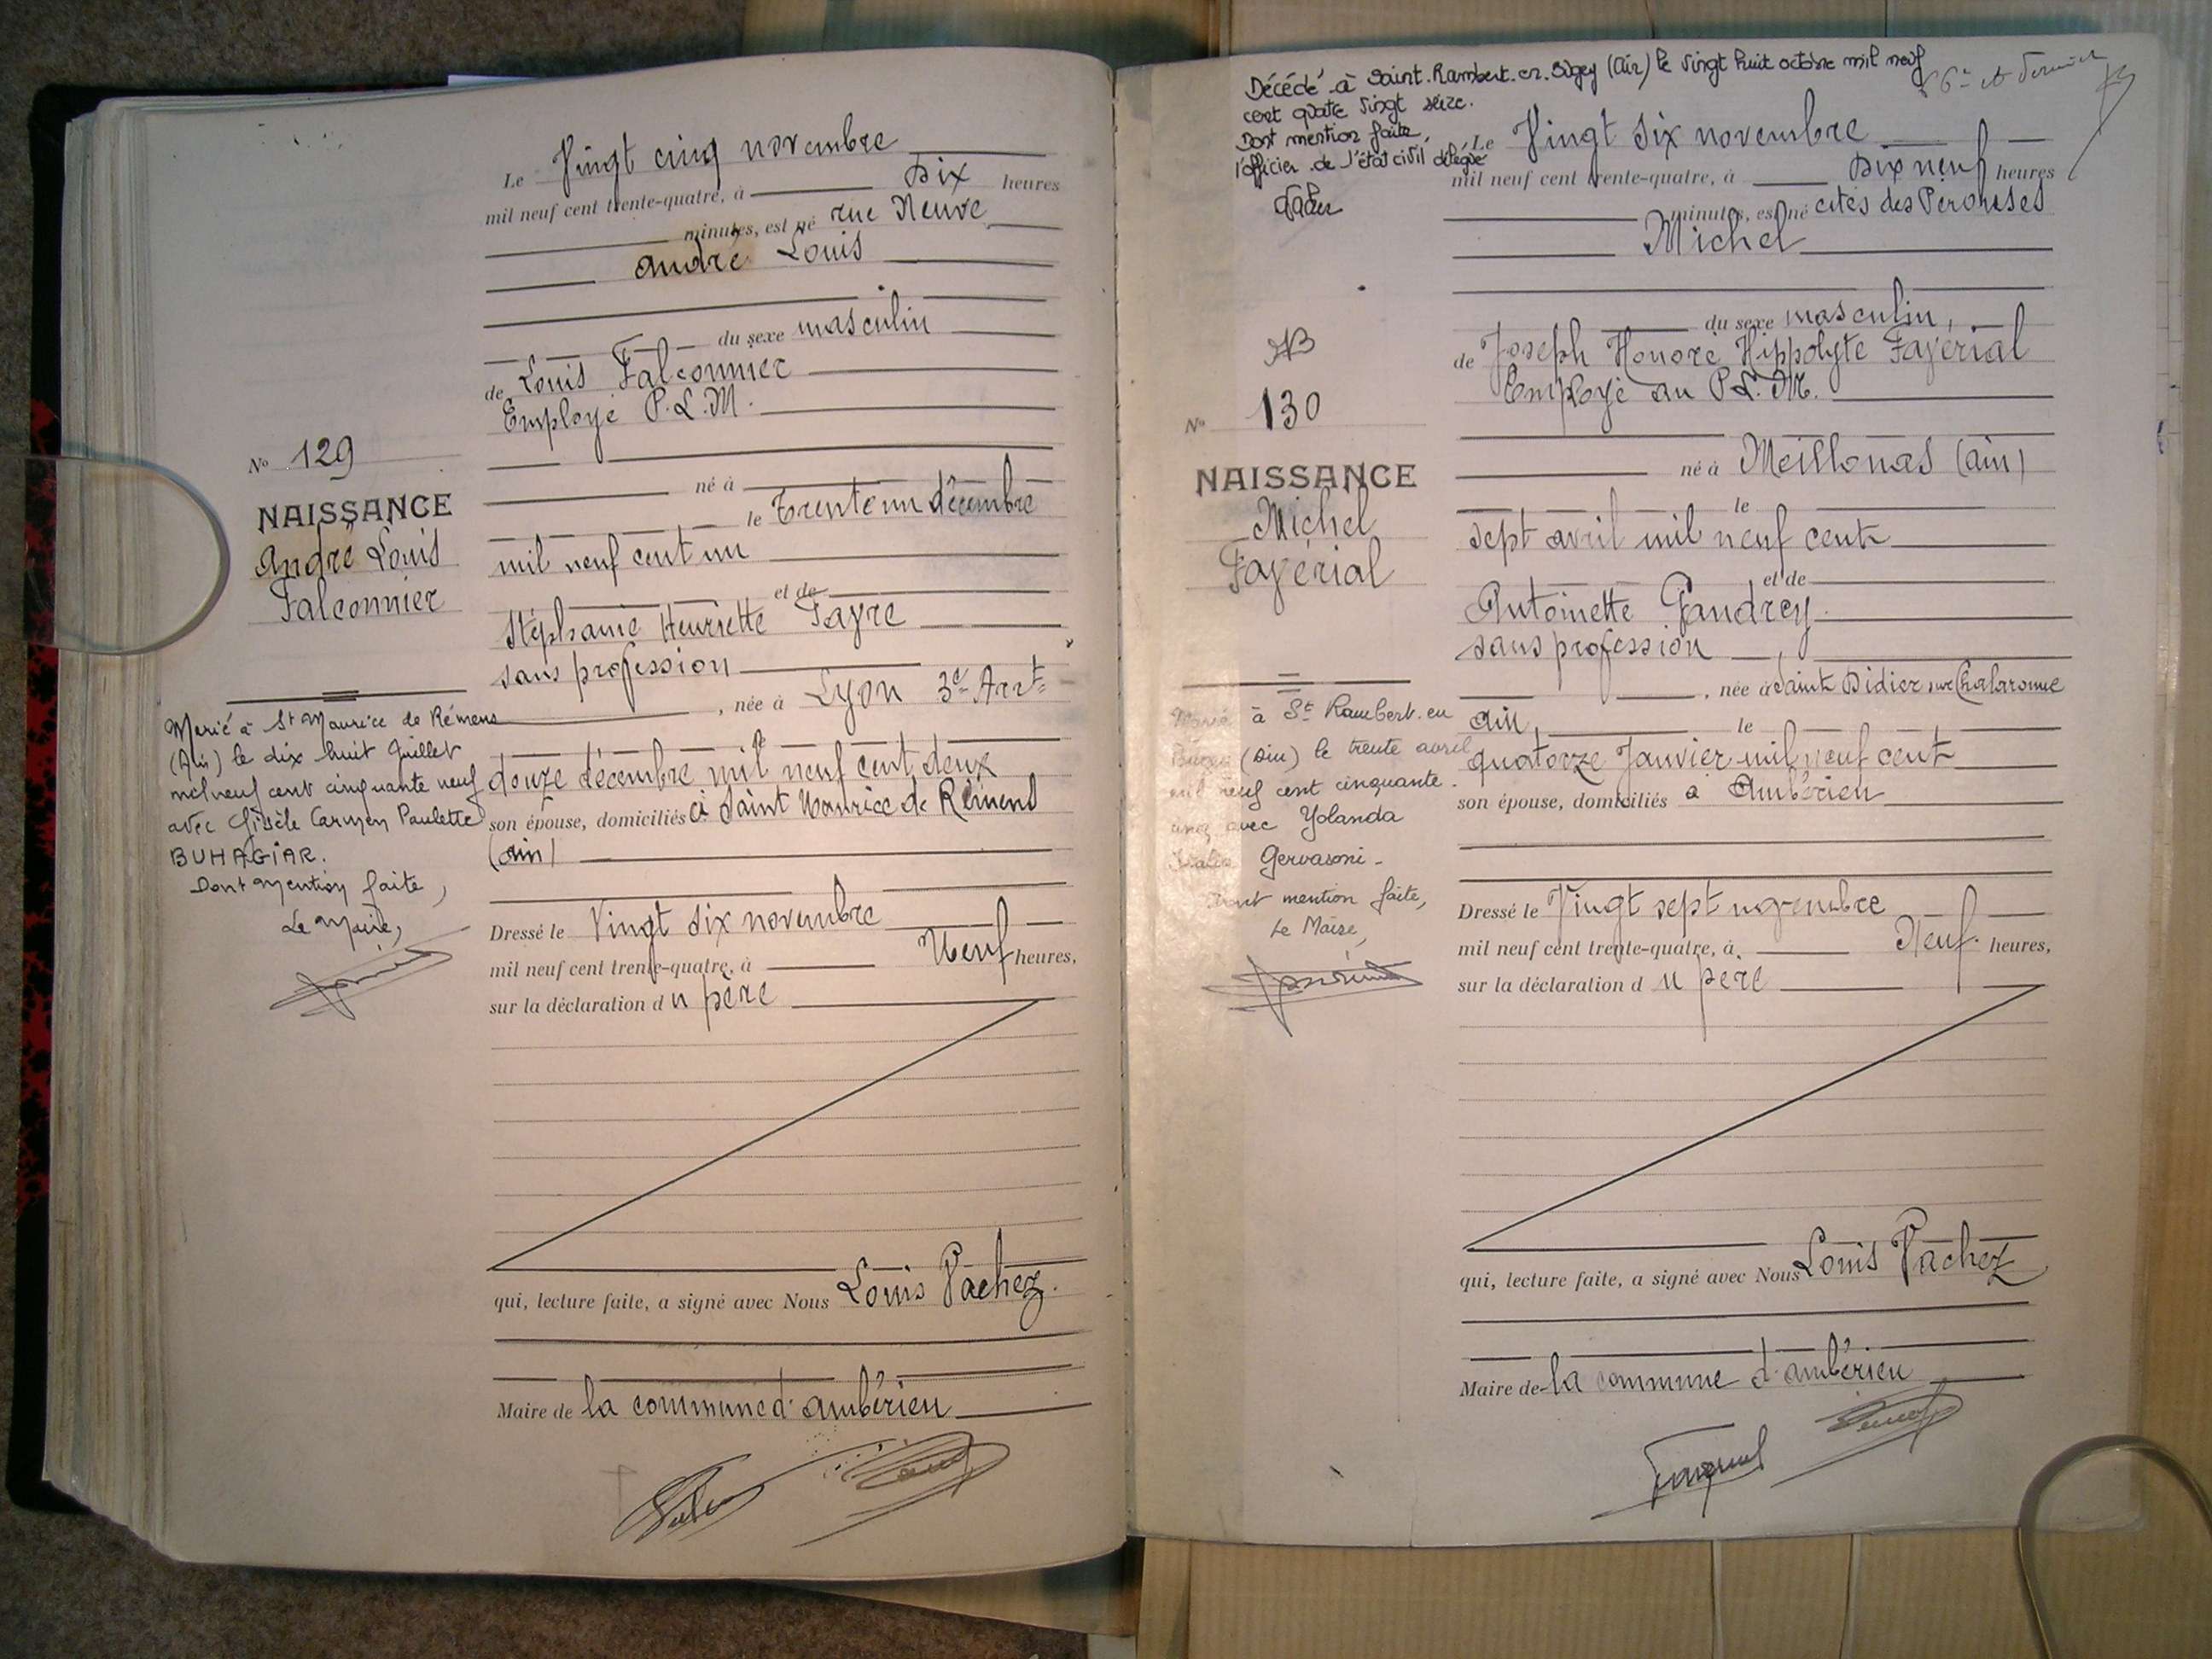 Le Vingt cinq novembre
mil neuf cent trente-quatre, à Dix heures
minutes, est né rue Neuve
André Louis
du sexe masculin
de Louis Falconnier
Employé P.L.M.
né à
le Trente un décembre
mil neuf cent un
et de
Stéphanie Henriette Fayre
sans profession
, née à Lyon 3e Arrt
le
douze décembre mil neuf cent deux
son épouse, domiciliés à Saint Maurice de Rémens
(Ain)
Dressé le Vingt six novembre
mil neuf cent trente-quatre, à Neuf heures,
sur la déclaration du père
qui, lecture faite, a signé avec Nous Louis Pachez.
Maire de la commune d'ambérien
No 129
NAISSANCE
André Louis
Falconnier
Marié à St Maurice de Rémens
(Ain) le dix huit Juillet
mil neuf cent cinquante neuf
avec Gisèle Carmen Paulette
BUHAGIAR.
Dont mention faite,
Le Maire,
Décédé à Saint.Rambert.en.Bugey (Ain) le vingt huit octobre mil neuf
cent quatre vingt seize.
Dont mention faite,
l'officier de l'état civil délégué
Le Vingt six novembre
mil neuf cent trente-quatre, à Dix neuf heures
minutes, est né cités des Perouses
Michel
du sexe masculin,
de Joseph Honoré Hippolyte Fayérial
Employé au P.L.M.
né à Meillonas (ain)
le
sept avril mil neuf cent
et de
Antoinette Gaudrey
sans profession
, née à Saint Didier sur Chalaronne
ain, le
quatorze Janvier mil neuf cent
son épouse, domiciliés à Ambérien
Dressé le Vingt sept novembre
mil neuf cent trente-quatre, à Neuf heures,
sur la déclaration du père
qui, lecture faite, a signé avec Nous Louis Pachez
Maire de la commune d'ambérien
No 130
NAISSANCE
Michel
Fayérial
Marié à St Rambert.en
Bugey (Ain) le trente avril
mil neuf cent cinquante.
cinq avec Yolanda
Gervasoni
Dont mention faite,
Le Maire,